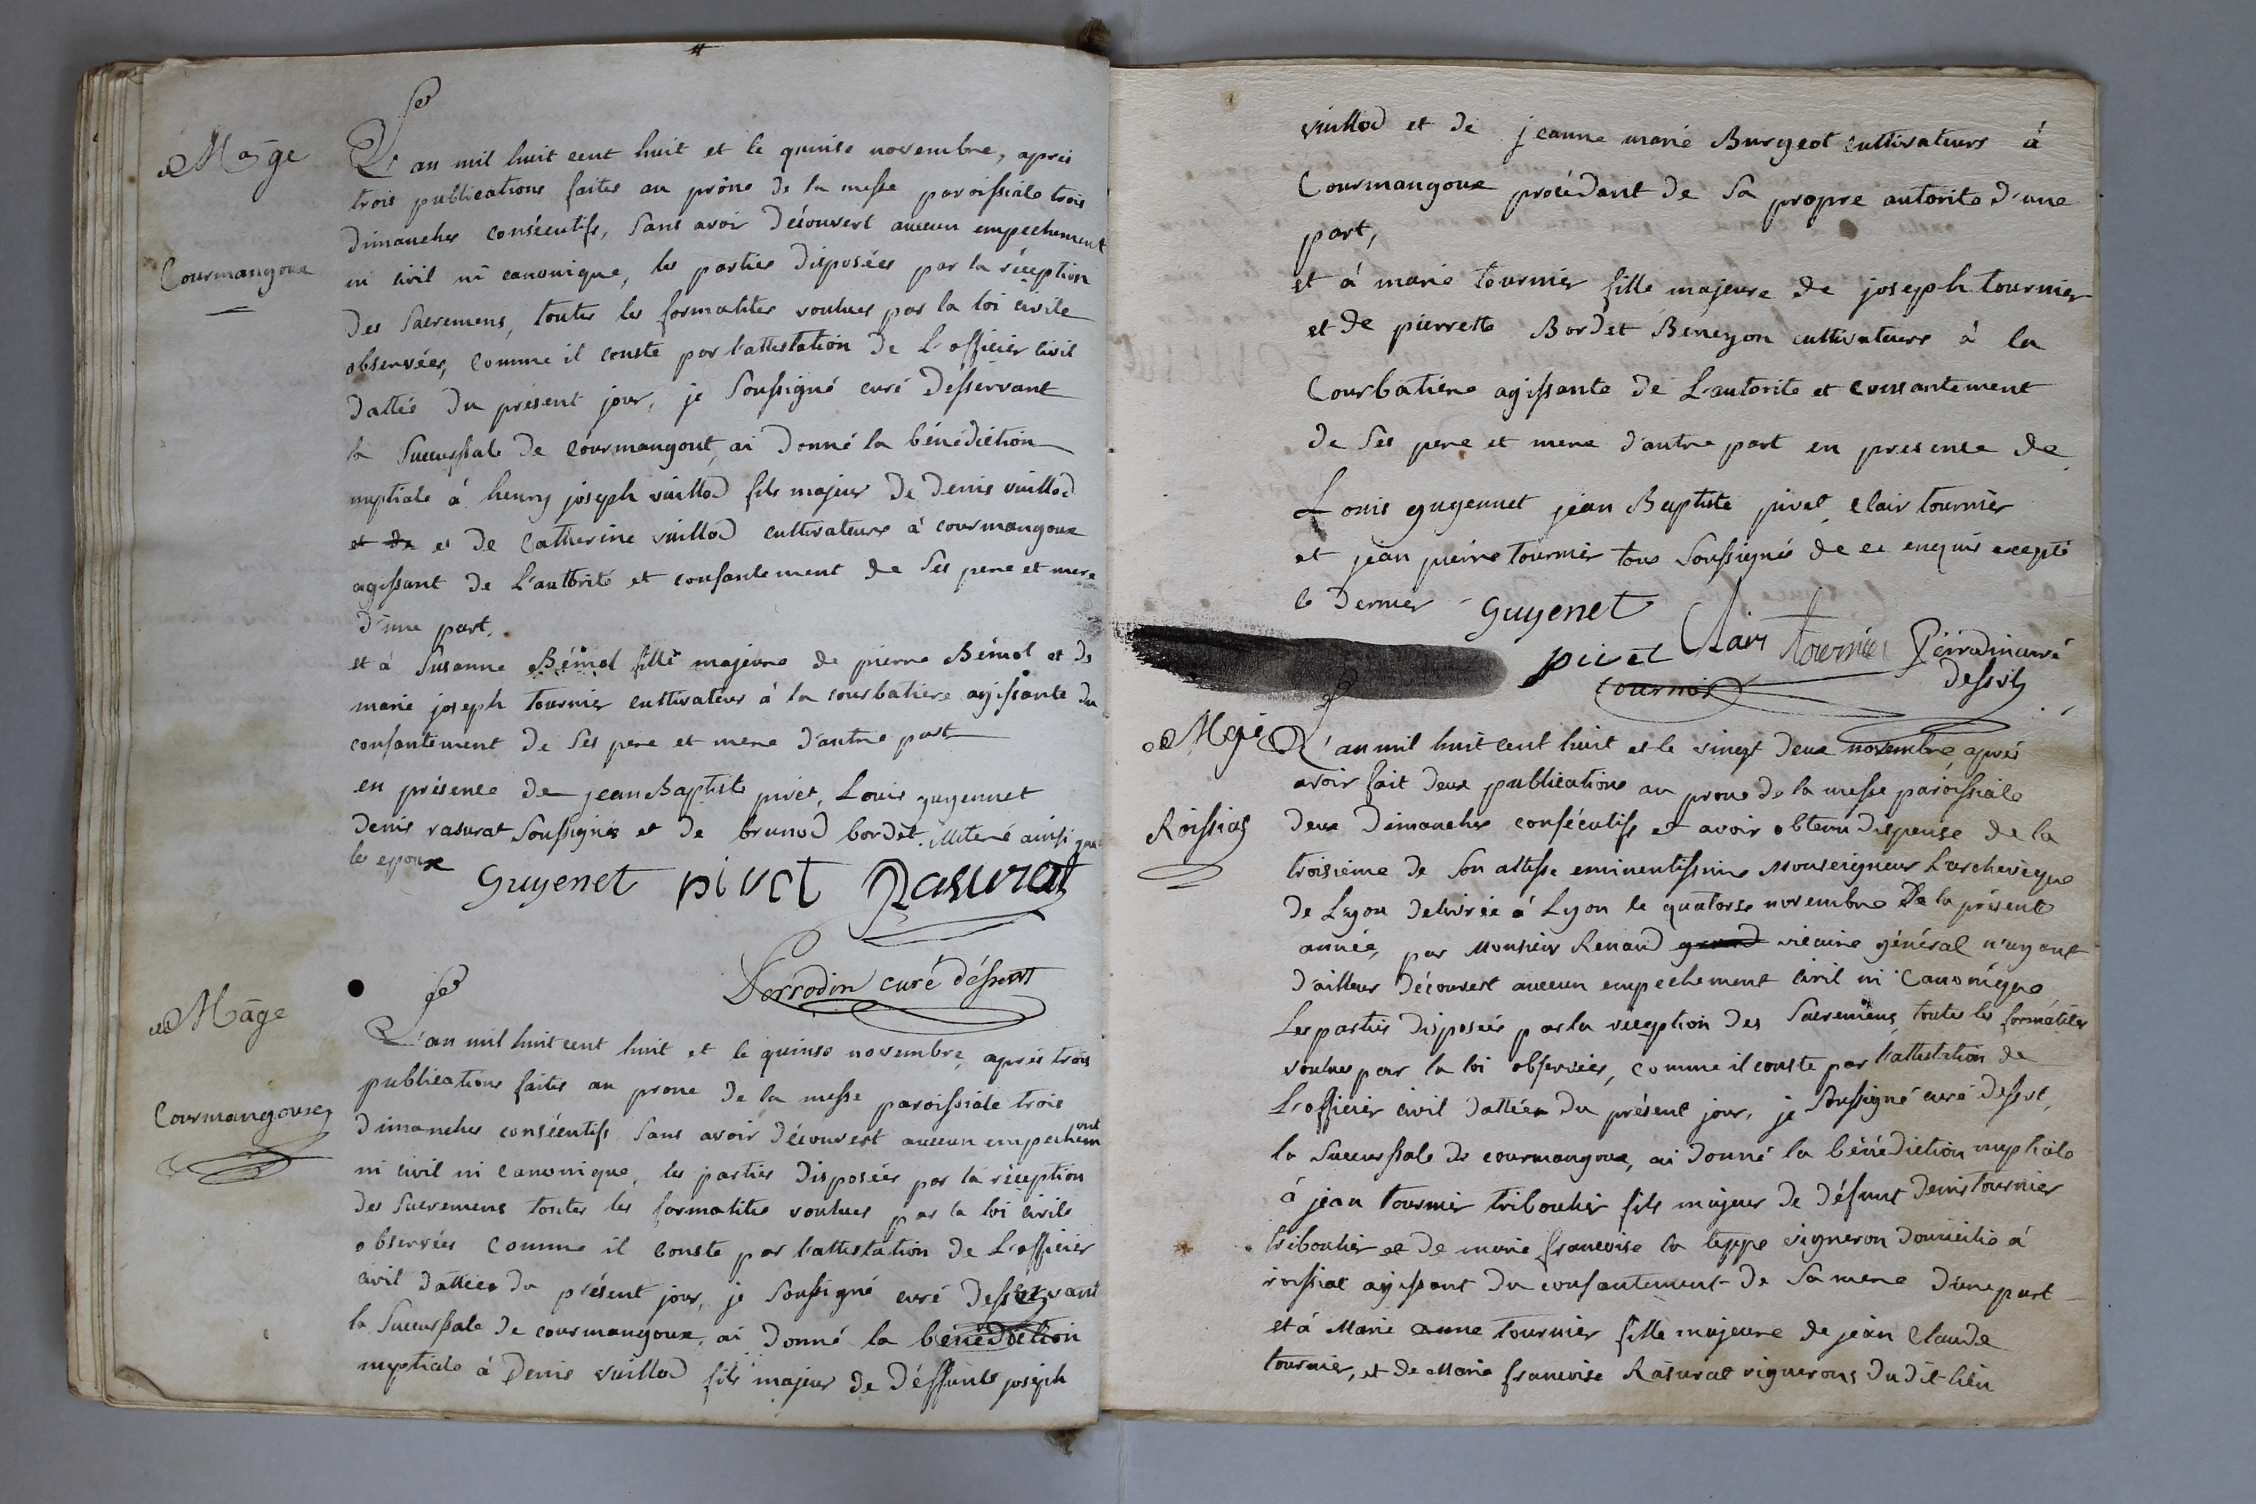 Mage
L'an mil huit cent huit et le quinse novembre, après
trois publications faites au prône de la messe paroissiale trois
dimanches consécutifs, sans avoir découvert aucun empechement
Courmangoux
ni civil ni canonique, les parties disposées par la réception
des sacremens, toutes les formalites voulues par la loi civile
observées, comme il conste par l'attestation de L'officier civil
dattée du présent jour, je soussigné curé desservant
la succursale de courmangout, ai donné la bénédiction
nuptiale à henry joseph vuillod fils majeur de denis vuillod
et de et de Catherine vuillod cultivateurs à courmangoux
agissant de L'autorité et consantement de ses pere et mere
d'une part,
et à Susanne Bémol fille majeure de pierre Bémol et de
marie joseph tournier cultivateurs à la courbatiere agissante du
consantement de ses pere et mere d'autre part
en présence de jean Baptiste pivet, Louis guyennet
denis rasurat soussignés et de brunod bordet illiteré ainsi que
les epoux
Guyenet pivet Rasurat
Perrodin curé désservt
Mage
L'an mil huit cent huit et le quinse novembre, après trois
publications faites au prone de la messe paroissiale trois
Courmangoux
dimanches consécutifs sans avoir découvert aucun empechement
ni civil ni canonique, les parties disposées par la réception
des sacremens toutes les formalites voulues par la loi civile
observées comme il conste par l'attestation de L'officier
civil dattée du présent jour, je soussigné curé desservant
la succursale de courmangoux, ai donné la bénédiction
nuptiale à Denis vuillod fils majeur de déffunts joseph
vuillod et de jeanne marie Burgeot cultivateurs à
Courmangoux procédant de sa propre autorité d'une
part,
et à marie tournier fille majeure de joseph tournier
et de pierrette Bordet Beneyon cultivateurs à la
Courbatiere agissante de L'autorite et consantement
de ses pere et mere d'autre part en presence de
Louis guyennet jean Baptiste pivet clair tournier
et jean pierre tournier tous soussignés de ce enquis excepté
le dernier Guyenet
pivet Clair tournier Perrodin curé
tournier
desservt
Mage
L'an mil huit cent huit et le vingt deux novembre après
avoir fait deux publications au prone de la messe paroissiale
Roissiat
deux dimanches consécutifs et avoir obtenu dispense de la
troisieme de son altesse eminentissime Monseigneur L'archevêque
de Lyon delivrée à Lyon le quatorse novembre de la présente
année, par Monsieur Renaud grand vicaire général n'ayant
d'ailleur découvert aucun empechement civil ni canonique
Les parties disposées par la réception des sacremens toutes les formalités
voulues par la loi observées, comme il conste par l'attestation de
L'officier civil dattée du présent jour, je soussigné curé dessvt
la succursale de courmangoux, ai donné la bénédiction nuptiale
à jean tournier triboulier fils majeur de défunt denis tournier
triboulier et de marie francoise la teppe vigneron domicilié à
roissiat agissant du consantement de sa mere d'une part
et à Marie anne tournier fille majeure de jean Claude
tournier, et de Marie francoise Rasurat vignerons dudit lieu